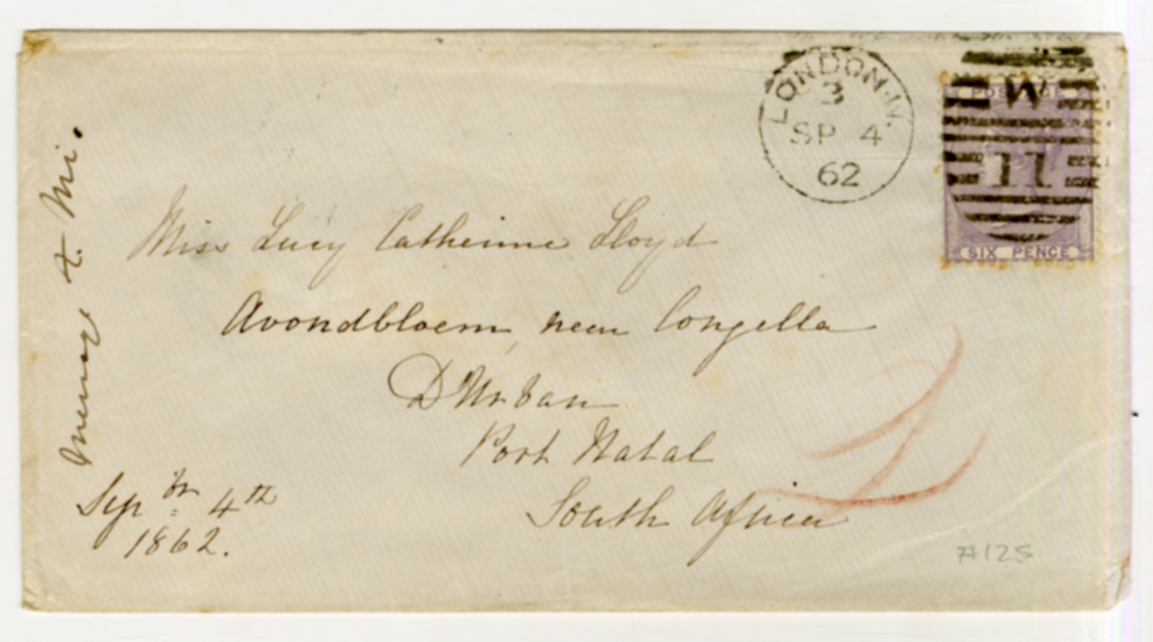 LONDON.W.
3
SP 4
62
POSTAGE
W
11
SIX PENCE
Miss Lucy Catherine Lloyd
Avondbloem, near Congella
D'Urban
Port Natal
South Africa
A. Mi.
Sepbr 4th
1862.
#125